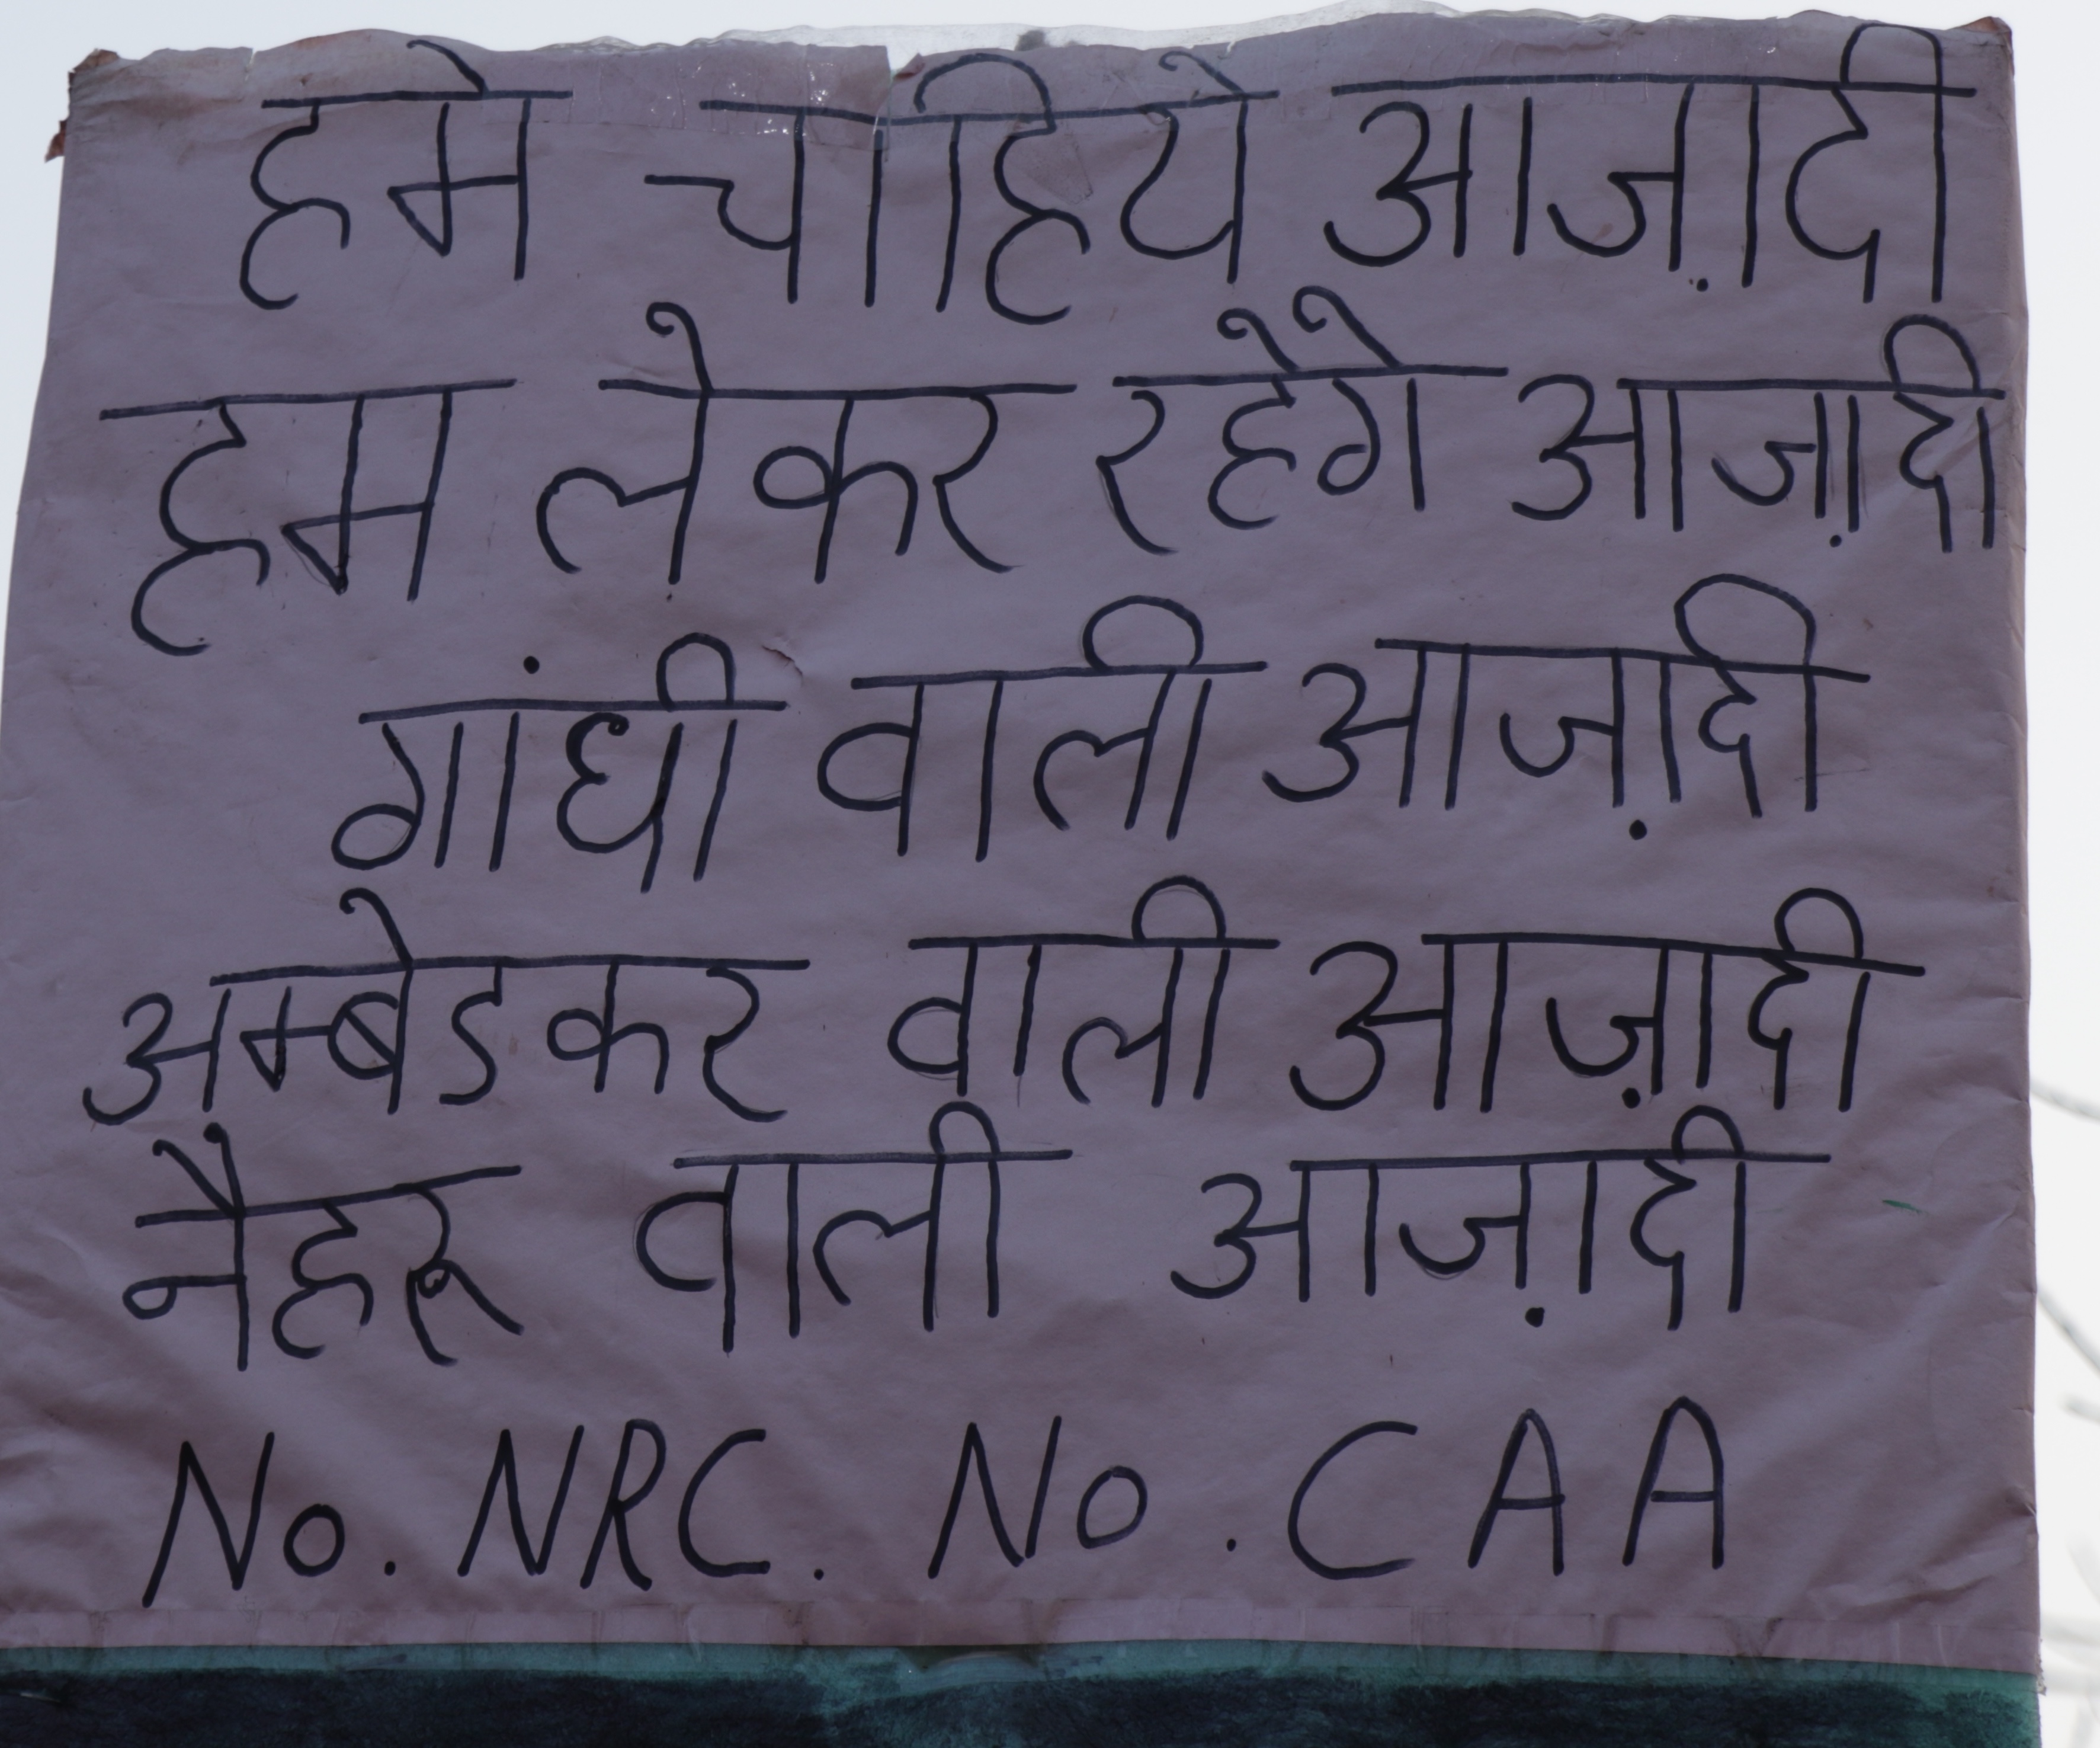 हमे चाहिये आज़ादी
हम लेकर रहेगे आज़ादी
गांधी वाली आज़ादी
अम्बेडकर वाली आज़ादी
नैहरू वाली आज़ादी
No. NRC. No. CAA